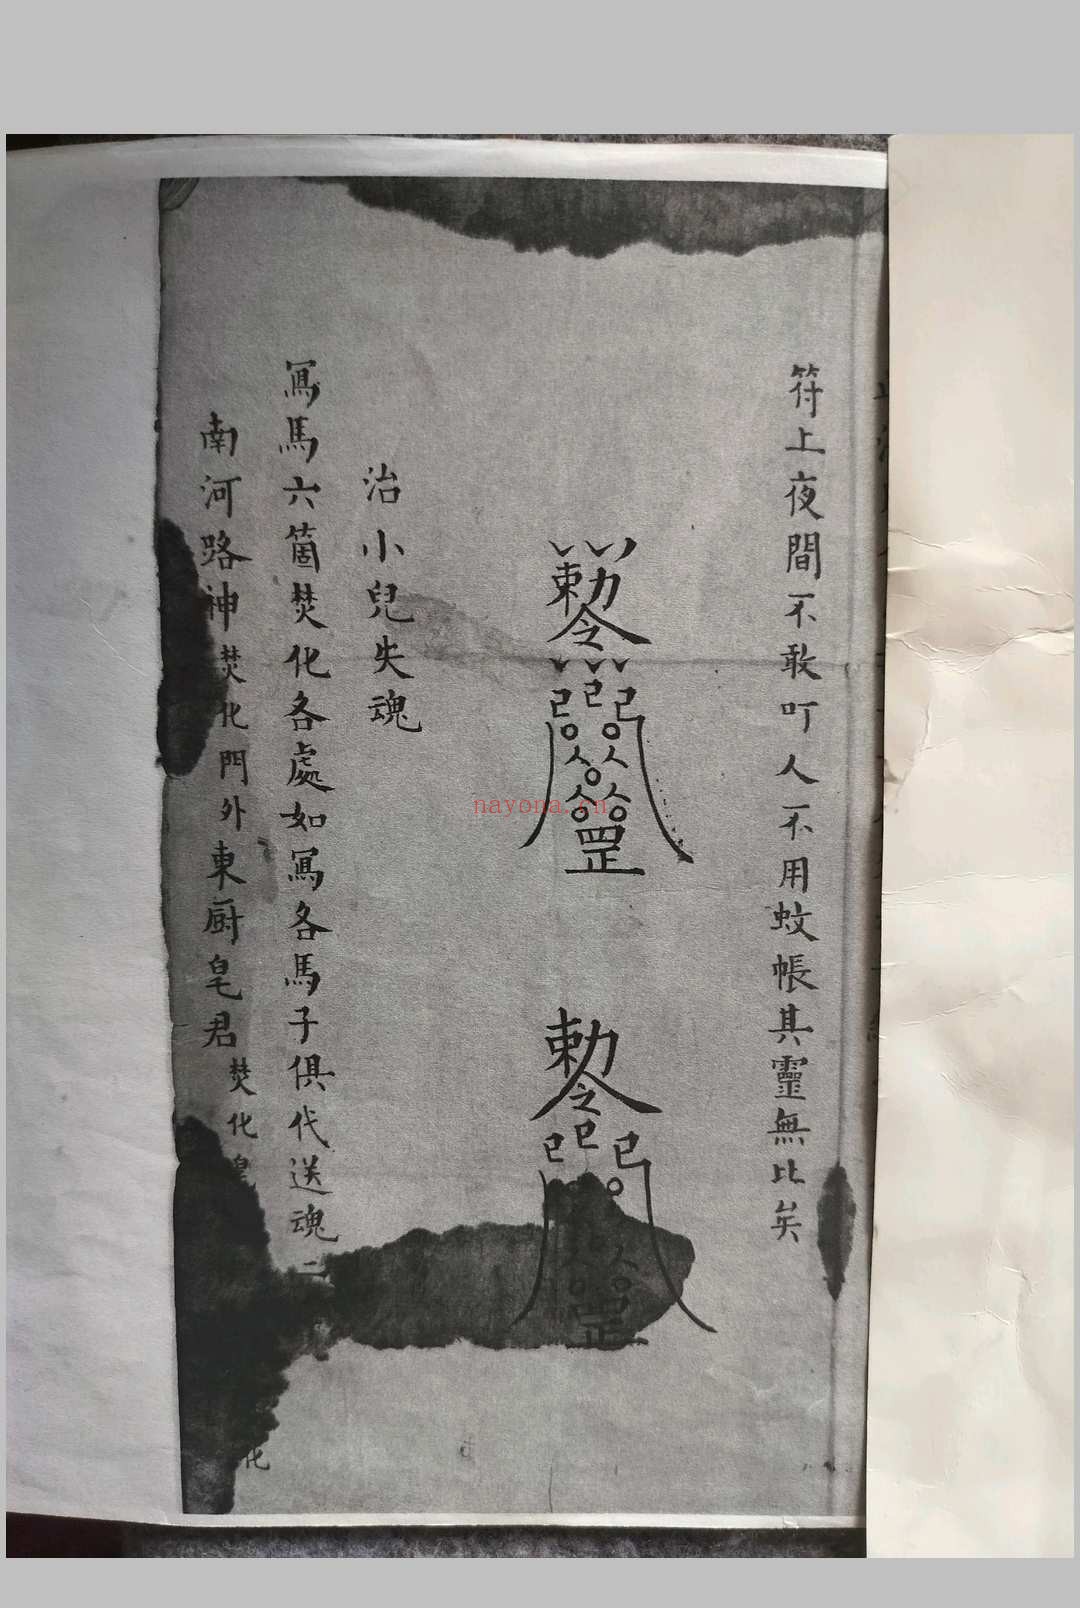 符上夜間不敢叮人不用蚊帳其靈無比矣
勅令
罡
勅令
罡
治小兒失魂
冩馬六箇焚化各處如冩各馬子俱代送魂二
南河路神焚化門外東厨皂君焚化
化
nayona.cn